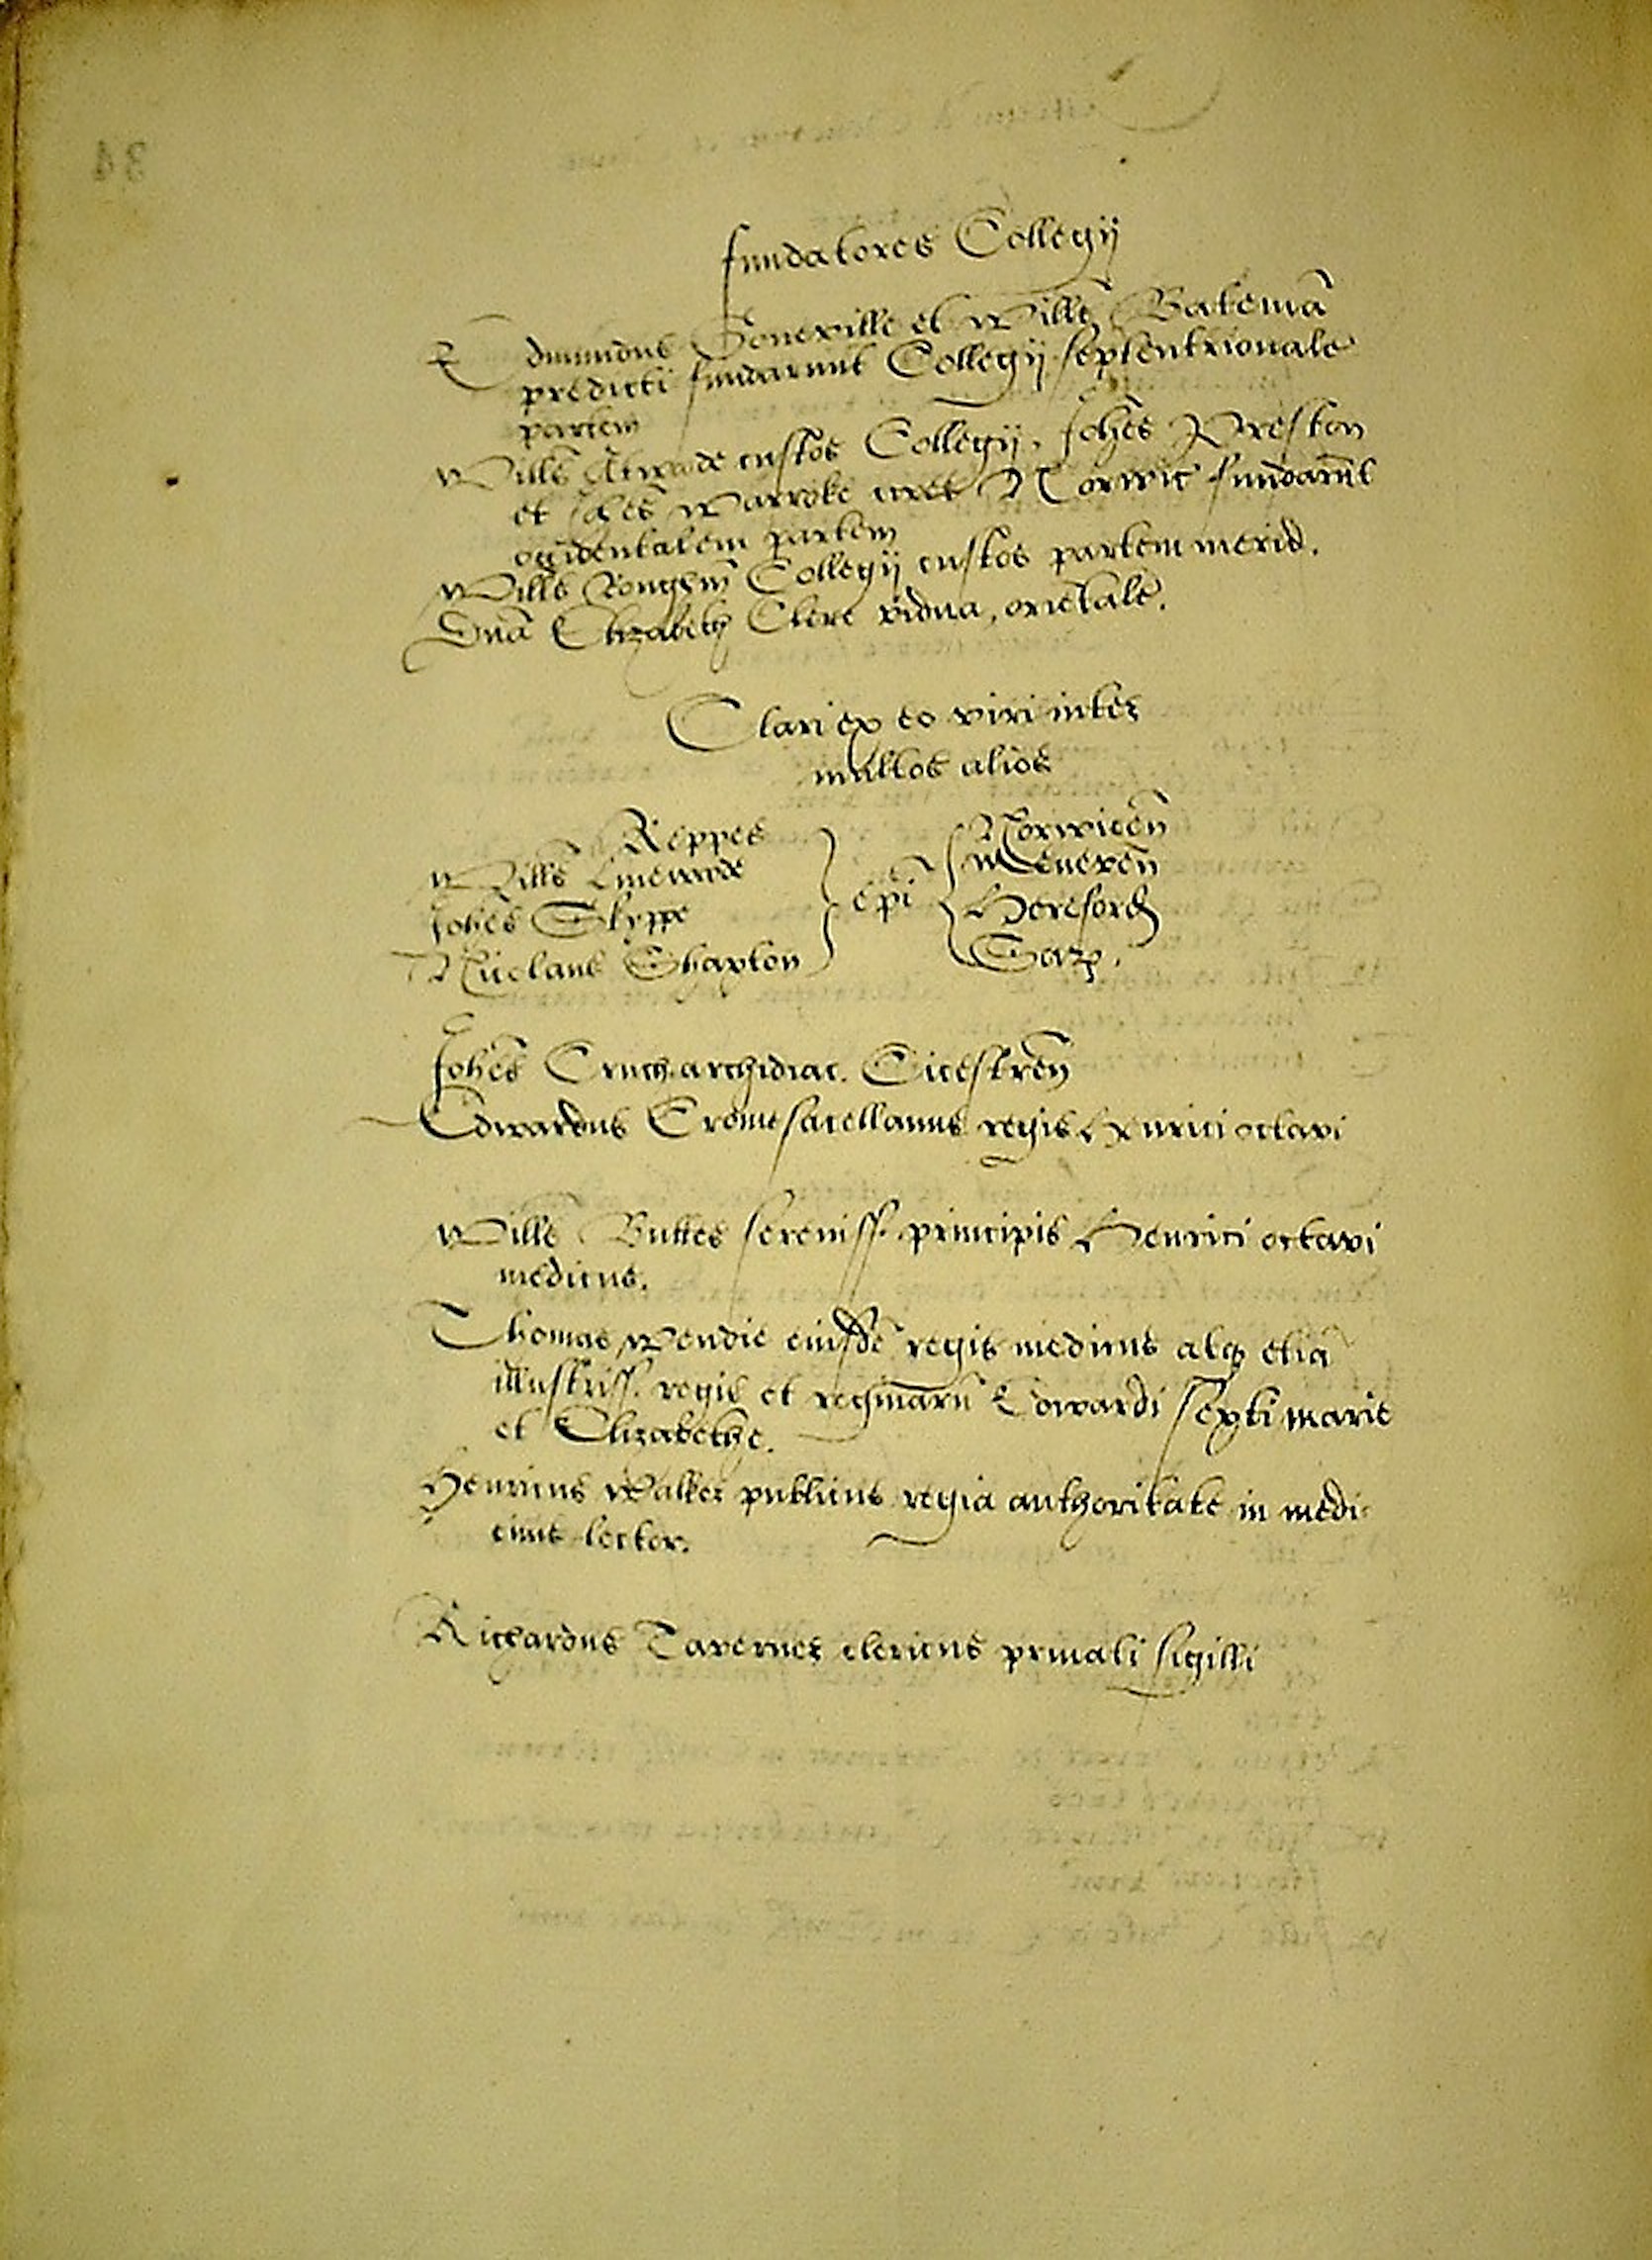 fundatores Collegij
Edmundus Goneville et Willm̄ Batemā
predicti fundarunt Collegij septentrionalē
partem
Willm̄s Atwode custos Collegij, Johēs Preston
et Johēs Warroke Norwic fundarūt
occidentalem partem
Willm̄s Rougham̄ Collegij custos partem merid.
Dnā Elizabeth Clere vidua, oriētalē.
Clari ex eo viri inter
multos alios
Reppes Norwicēn
Willm̄s Linewode Menevēn
Johēs Skyppe epī Hereford
Nicolaus Shaxton Sarȝ.
Johēs Cruch archidiac. Cicestrēn
Edwardus Crome sacellanus regis Henrici octavi
Willm̄s Buttes sereniss. principis Henrici octavi
medicus.
Thomas Wendie eiusdē regis medicus atq̨ etiā
illustriss. regis et reginarū Edwardi sexti marie
et Elizabethe.
Henricus Walker publicus regia authoritate in medi
cinis lector.
Richardus Taverner clericus privati sigilli
34